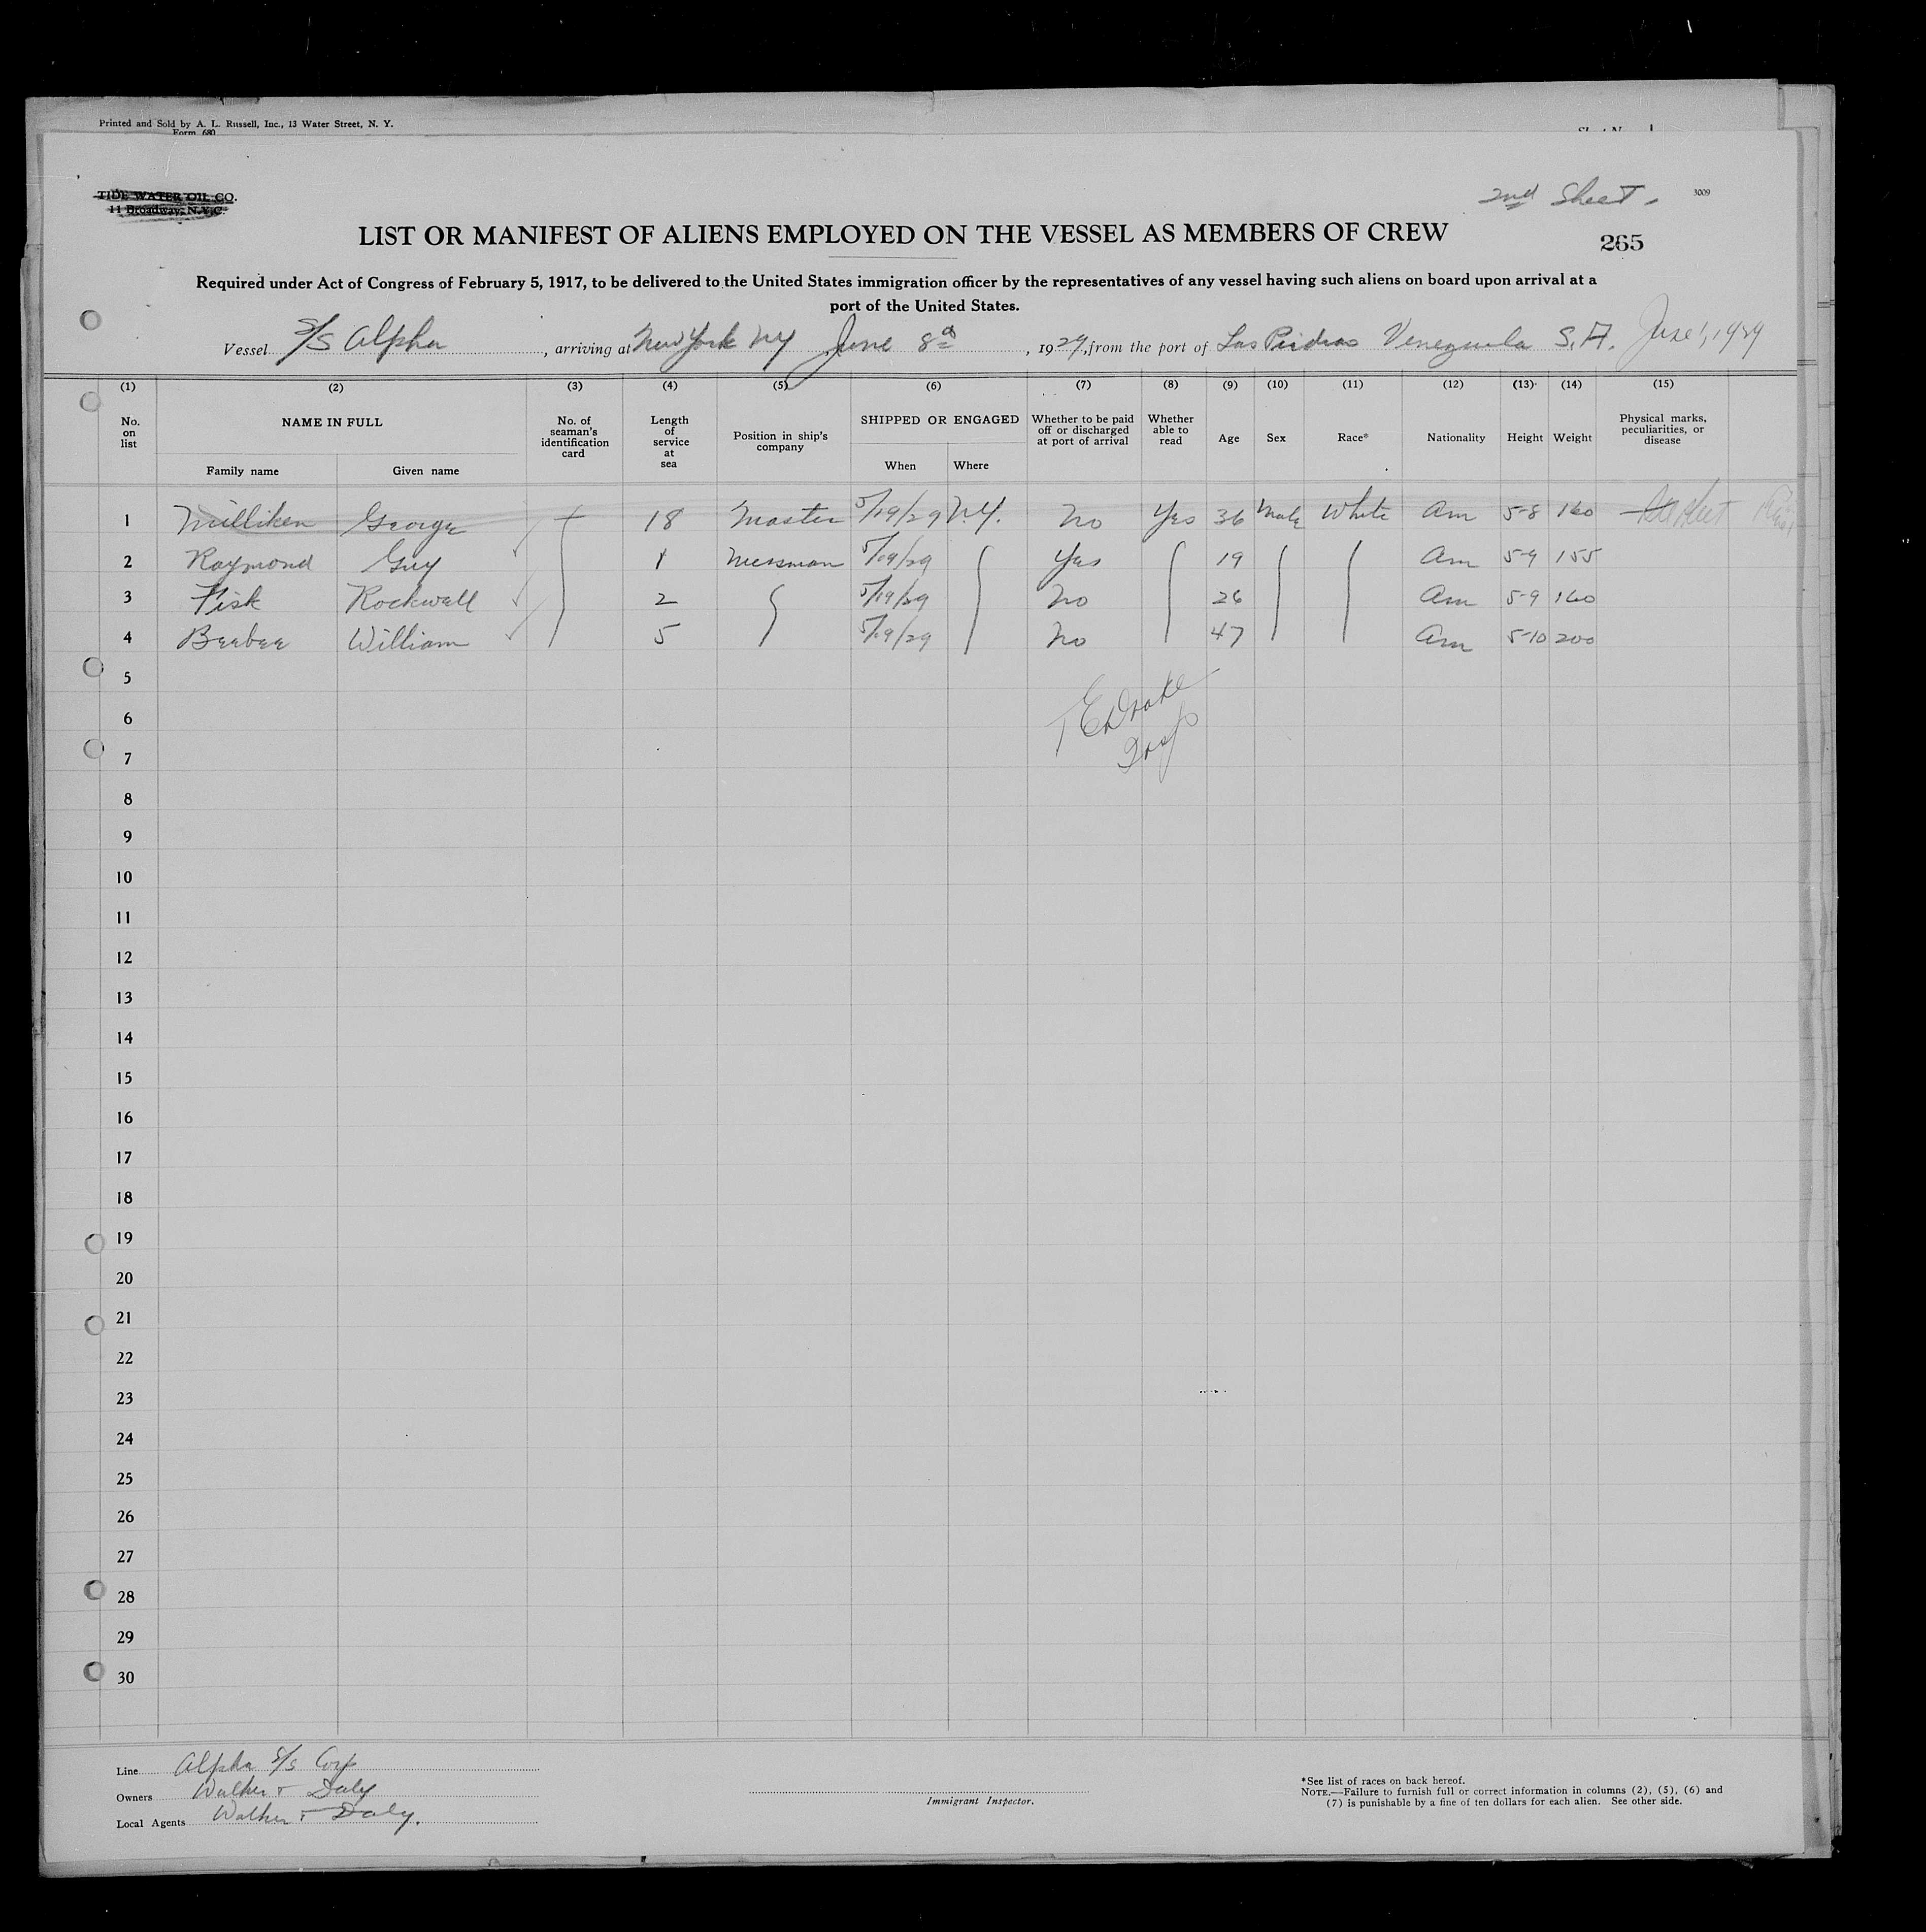 Printed and Sold by A. L. Russell, Inc., 13 Water Street, N. Y.
Form 680
TIDE WATER OIL CO.
11 Broadway, N.Y.C.
2nd Sheet.
3009
LIST OR MANIFEST OF ALIENS EMPLOYED ON THE VESSEL AS MEMBERS OF CREW
265
Required under Act of Congress of February 5, 1917, to be delivered to the United States immigration officer by the representatives of any vessel having such aliens on board upon arrival at a
port of the United States.
Vessel S/S Alpha, arriving at New York NY June 8th, 1929, from the port of Las Piedras Venezuela S.A. June 1, 1929
(1) (2) (3) (4) (5) (6) (7) (8) (9) (10) (11) (12) (13) (14) (15)
No. on list NAME IN FULL Family name Given name No. of seaman's identification card Length of service at sea Position in ship's company SHIPPED OR ENGAGED When Where Whether to be paid off or discharged at port of arrival Whether able to read Age Sex Race* Nationality Height Weight Physical marks, peculiarities, or disease
1 Milliken George 18 Master 5/19/29 N.Y. No Yes 36 Male White Am 5-8 160
2 Raymond Guy 1 Messman 5/19/29 Yes 19 Am 5-9 155
3 Fisk Rockwell 2 5/19/29 No 26 Am 5-9 160
4 Beebee William 5 5/19/29 No 47 Am 5-10 200
5
6
7
8
9
10
11
12
13
14
15
16
17
18
19
20
21
22
23
24
25
26
27
28
29
30
Line Alpha S/S Corp
Owners Walker & Daly
Local Agents Walker & Daly.
Immigrant Inspector.
*See list of races on back hereof.
NOTE.—Failure to furnish full or correct information in columns (2), (5), (6) and
(7) is punishable by a fine of ten dollars for each alien. See other side.